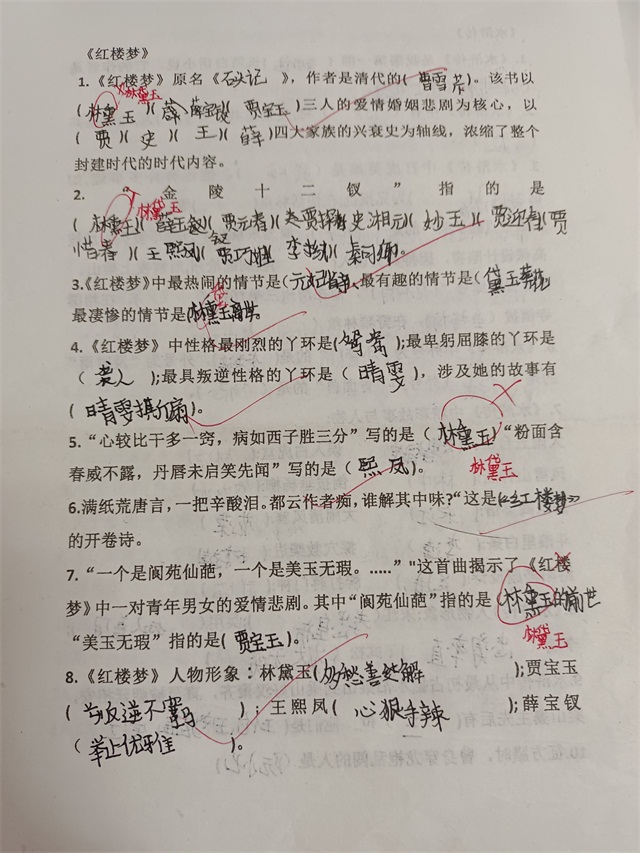 《红楼梦》
1.《红楼梦》原名《石头记》，作者是清代的(曹雪芹)。该书以
林黛玉
(林黛玉)(薛宝钗)(贾宝玉)三人的爱情婚姻悲剧为核心，以
(贾)(史)(王)(薛)四大家族的兴衰史为轴线，浓缩了整个
封建时代的时代内容。
2. “金陵十二钗”指的是
林黛玉
(林黛玉)(薛宝钗)(贾元春)(贾探春)(史湘云)(妙玉)(贾迎春)(贾
惜春)(王熙凤)(贾巧姐)(李纨)(秦可卿)。
3.《红楼梦》中最热闹的情节是(元妃省亲),最有趣的情节是(黛玉葬花
最凄惨的情节是(林黛玉离世。
4.《红楼梦》中性格最刚烈的丫环是(鸳鸯);最卑躬屈膝的丫环是
(袭人);最具叛逆性格的丫环是(晴雯)，涉及她的故事有
(晴雯撕扇)。
5.“心较比干多一窍，病如西子胜三分”写的是(林黛玉)“粉面含
春威不露，丹唇未启笑先闻”写的是(熙凤)。
林黛玉
6.满纸荒唐言，一把辛酸泪。都云作者痴，谁解其中味?“这是(《红楼梦》)
的开卷诗。
7.“一个是阆苑仙葩，一个是美玉无瑕。.....”"这首曲揭示了《红楼
梦》中一对青年男女的爱情悲剧。其中“阆苑仙葩”指的是(林黛玉的前世
林黛玉
“美玉无瑕”指的是(贾宝玉)。
8.《红楼梦》人物形象：林黛玉(多愁善处解);贾宝玉
(反逆不羁);王熙凤(心狠手辣);薛宝钗
(举止优雅)。